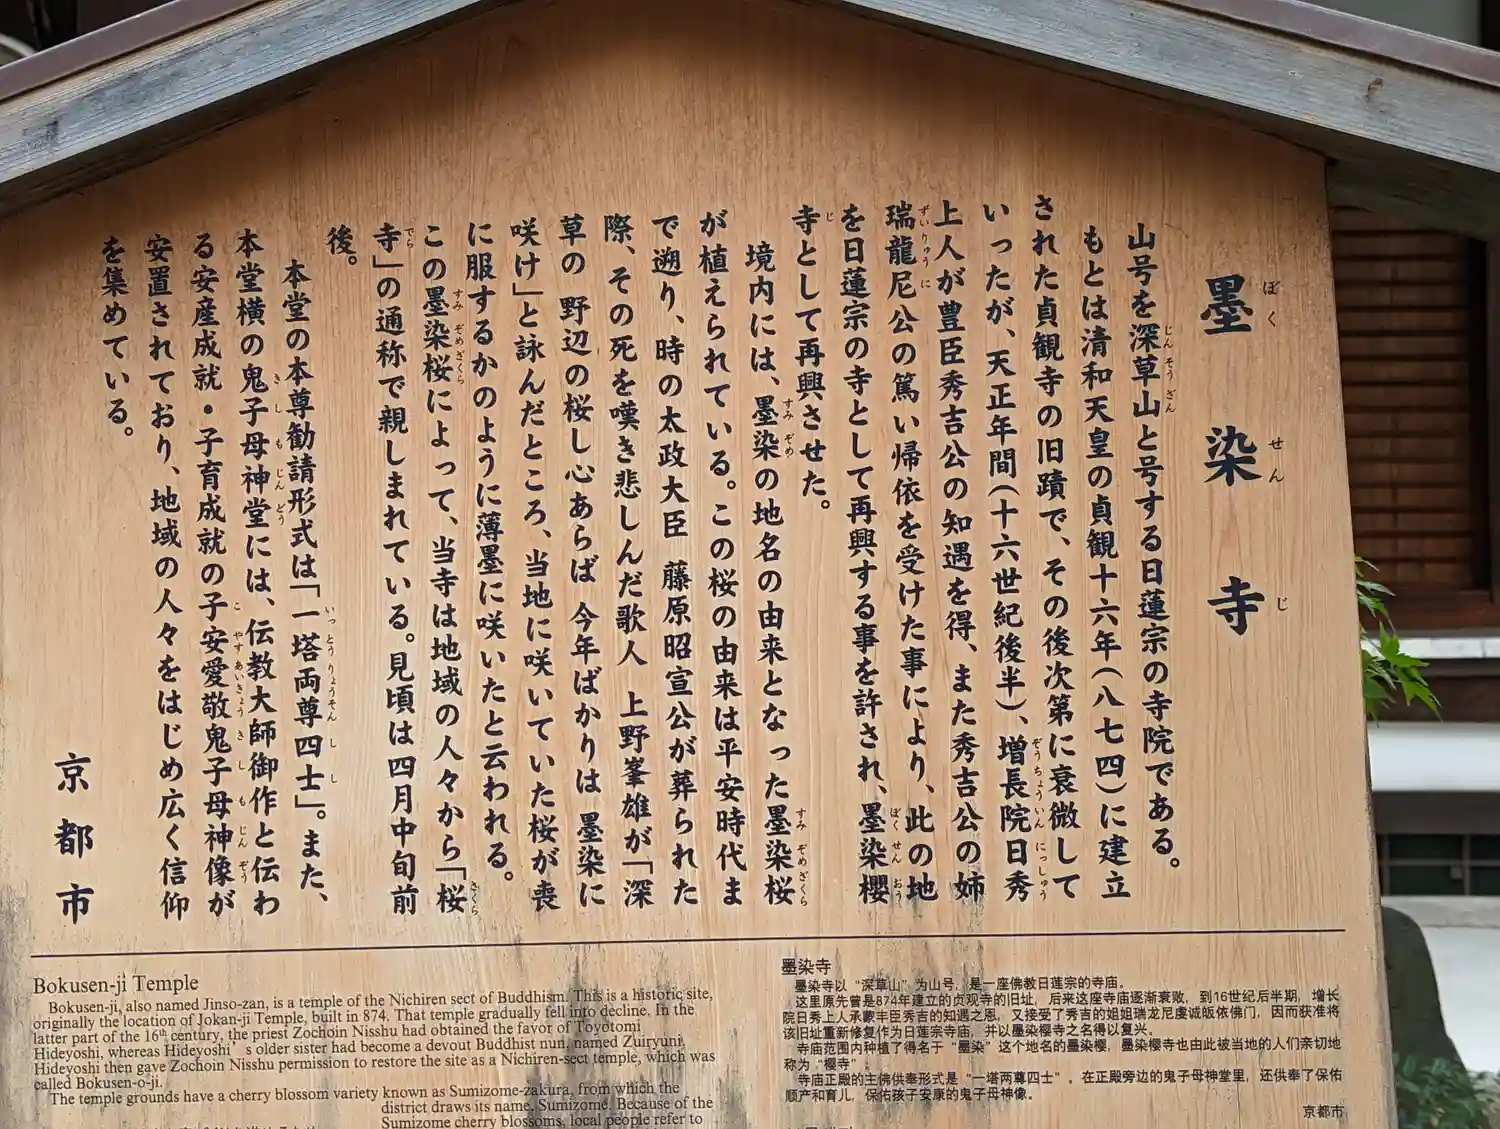 墨染寺
ぼくせんじ
山号を深草山と号する日蓮宗の寺院である。
じんそうざん
もとは清和天皇の貞観十六年(八七四)に建立
された貞観寺の旧蹟で、その後次第に衰微して
いったが、天正年間(十六世紀後半)、増長院日秀
ぞうちょういんにっしゅう
上人が豊臣秀吉公の知遇を得、また秀吉公の姉
瑞龍尼公の篤い帰依を受けた事により、此の地
ずいりゅうに
を日蓮宗の寺として再興する事を許され、墨染櫻
ぼくせんおう
寺として再興させた。
じ
境内には、墨染の地名の由来となった墨染桜
すみぞめ
すみぞめざくら
が植えられている。この桜の由来は平安時代ま
で遡り、時の太政大臣 藤原昭宣公が葬られた
際、その死を嘆き悲しんだ歌人 上野峯雄が「深
草の 野辺の桜し心あらば 今年ばかりは 墨染に
咲け」と詠んだところ、当地に咲いていた桜が喪
に服するかのように薄墨に咲いたと云われる。
この墨染桜によって、当寺は地域の人々から「桜
すみぞめざくら
さくら
寺」の通称で親しまれている。見頃は四月中旬前
でら
後。
本堂の本尊勧請形式は「一塔両尊四士」。また、
いっとうりょうそんしし
本堂横の鬼子母神堂には、伝教大師御作と伝わ
きしもじんどう
る安産成就・子育成就の子安愛敬鬼子母神像が
こやすあいきょうきしもじんぞう
安置されており、地域の人々をはじめ広く信仰
を集めている。
京都市
Bokusen-ji Temple
Bokusen-ji, also named Jinso-zan, is a temple of the Nichiren sect of Buddhism. This is a historic site,
originally the location of Jokan-ji Temple, built in 874. That temple gradually fell into decline. In the
latter part of the 16th century, the priest Zochoin Nisshu had obtained the favor of Toyotomi
Hideyoshi, whereas Hideyoshi's older sister had become a devout Buddhist nun, named Zuiryuni,
Hideyoshi then gave Zochoin Nisshu permission to restore the site as a Nichiren-sect temple, which was
called Bokusen-o-ji.
The temple grounds have a cherry blossom variety known as Sumizome-zakura, from which the
district draws its name, Sumizome. Because of the
Sumizome cherry blossoms, local people refer to
墨染寺
墨染寺以“深草山”为山号，是一座佛教日莲宗的寺庙。
这里原先曾是874年建立的贞观寺的旧址，后来这座寺庙逐渐衰败，到16世纪后半期，增长
院日秀上人承蒙丰臣秀吉的知遇之恩，又接受了秀吉的姐姐瑞龙尼虔诚皈依佛门，因而获准将
该旧址重新修复作为日莲宗寺庙，并以墨染樱寺之名得以复兴。
寺庙范围内种植了得名于“墨染”这个地名的墨染樱，墨染樱寺也由此被当地的人们亲切地
称为“樱寺”。
寺庙正殿的主佛供奉形式是“一塔两尊四士”，在正殿旁边的鬼子母神堂里，还供奉了保佑
顺产和育儿，保佑孩子安康的鬼子母神像。
京都市